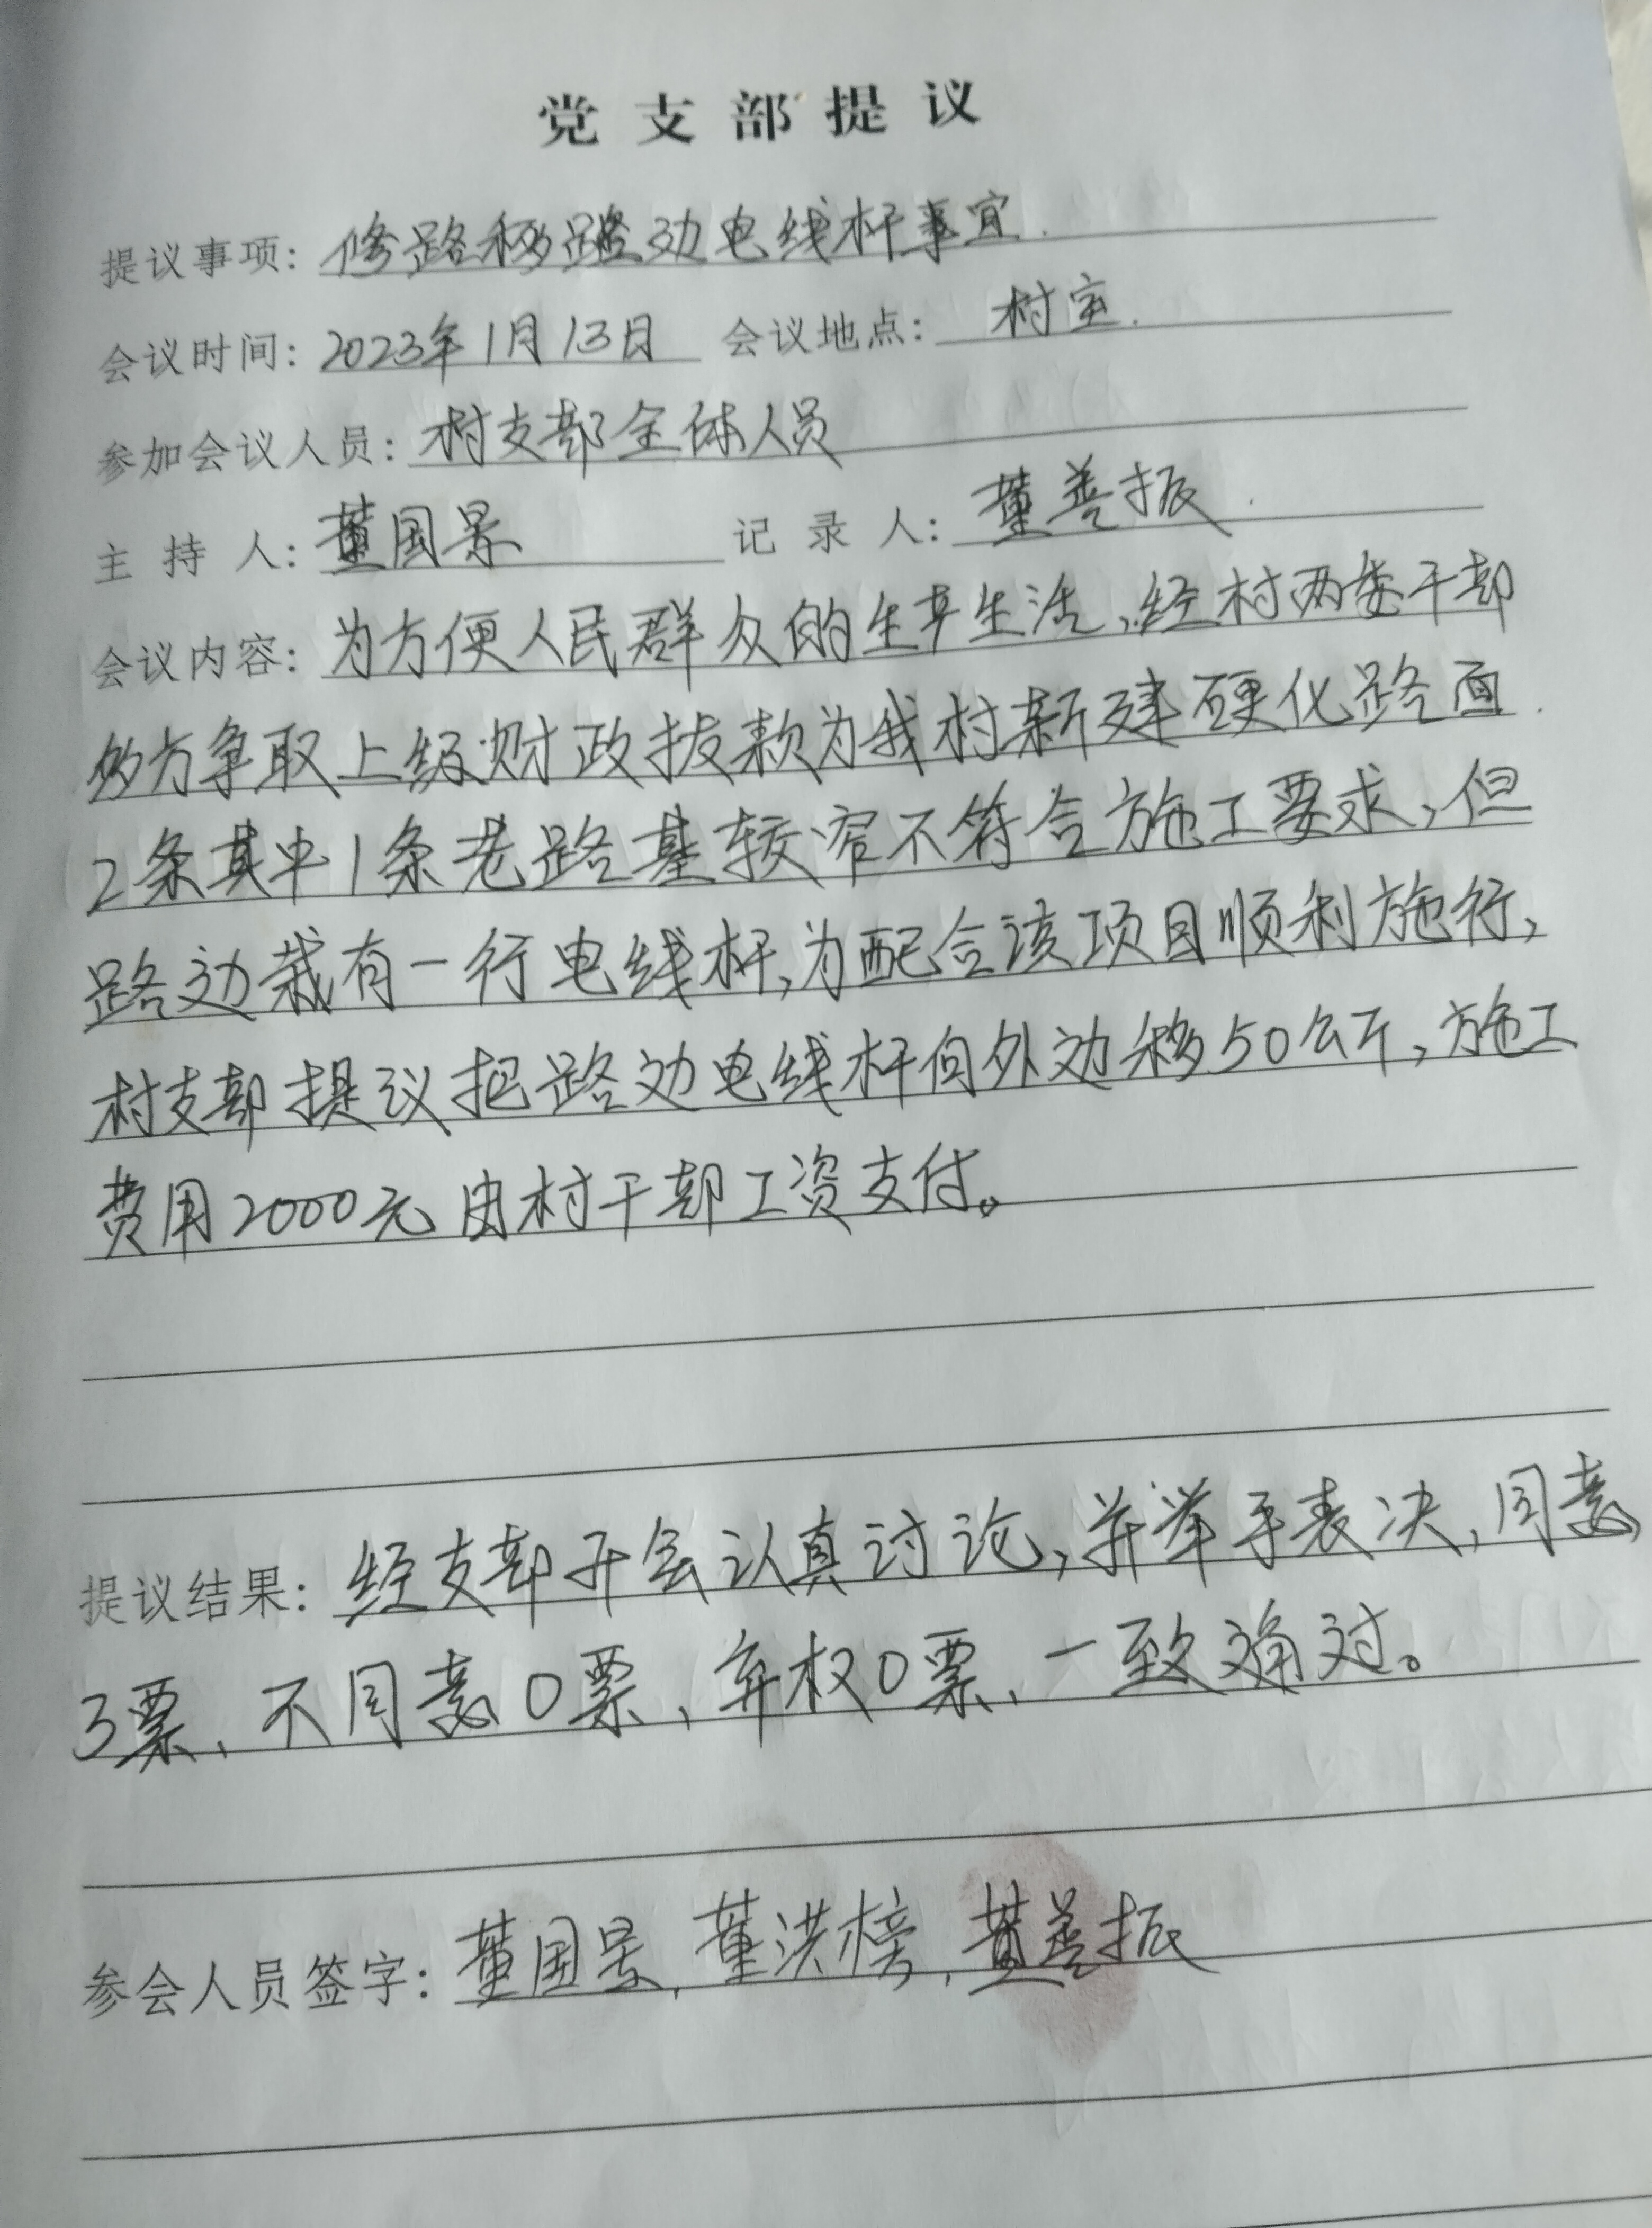 党支部提议
提议事项: 修路移路边电线杆事宜.
会议时间: 2023年1月13日 会议地点: 村室.
参加会议人员: 村支部全体人员
主持人: 董国景 记录人: 董善振.
会议内容: 为方便人民群众的生产生活,经村两委干部
多方争取上级财政拨款为我村新建硬化路面.
2条其中1条老路基较窄不符合施工要求,但
路边栽有一行电线杆,为配合该项目顺利施行,
村支部提议把路边电线杆向外边移50公斤,施工
费用2000元由村干部工资支付。
提议结果: 经支部开会认真讨论,并举手表决,同意
3票、不同意0票、弃权0票、一致通过。
参会人员签字: 董国景、董洪榜、董善振